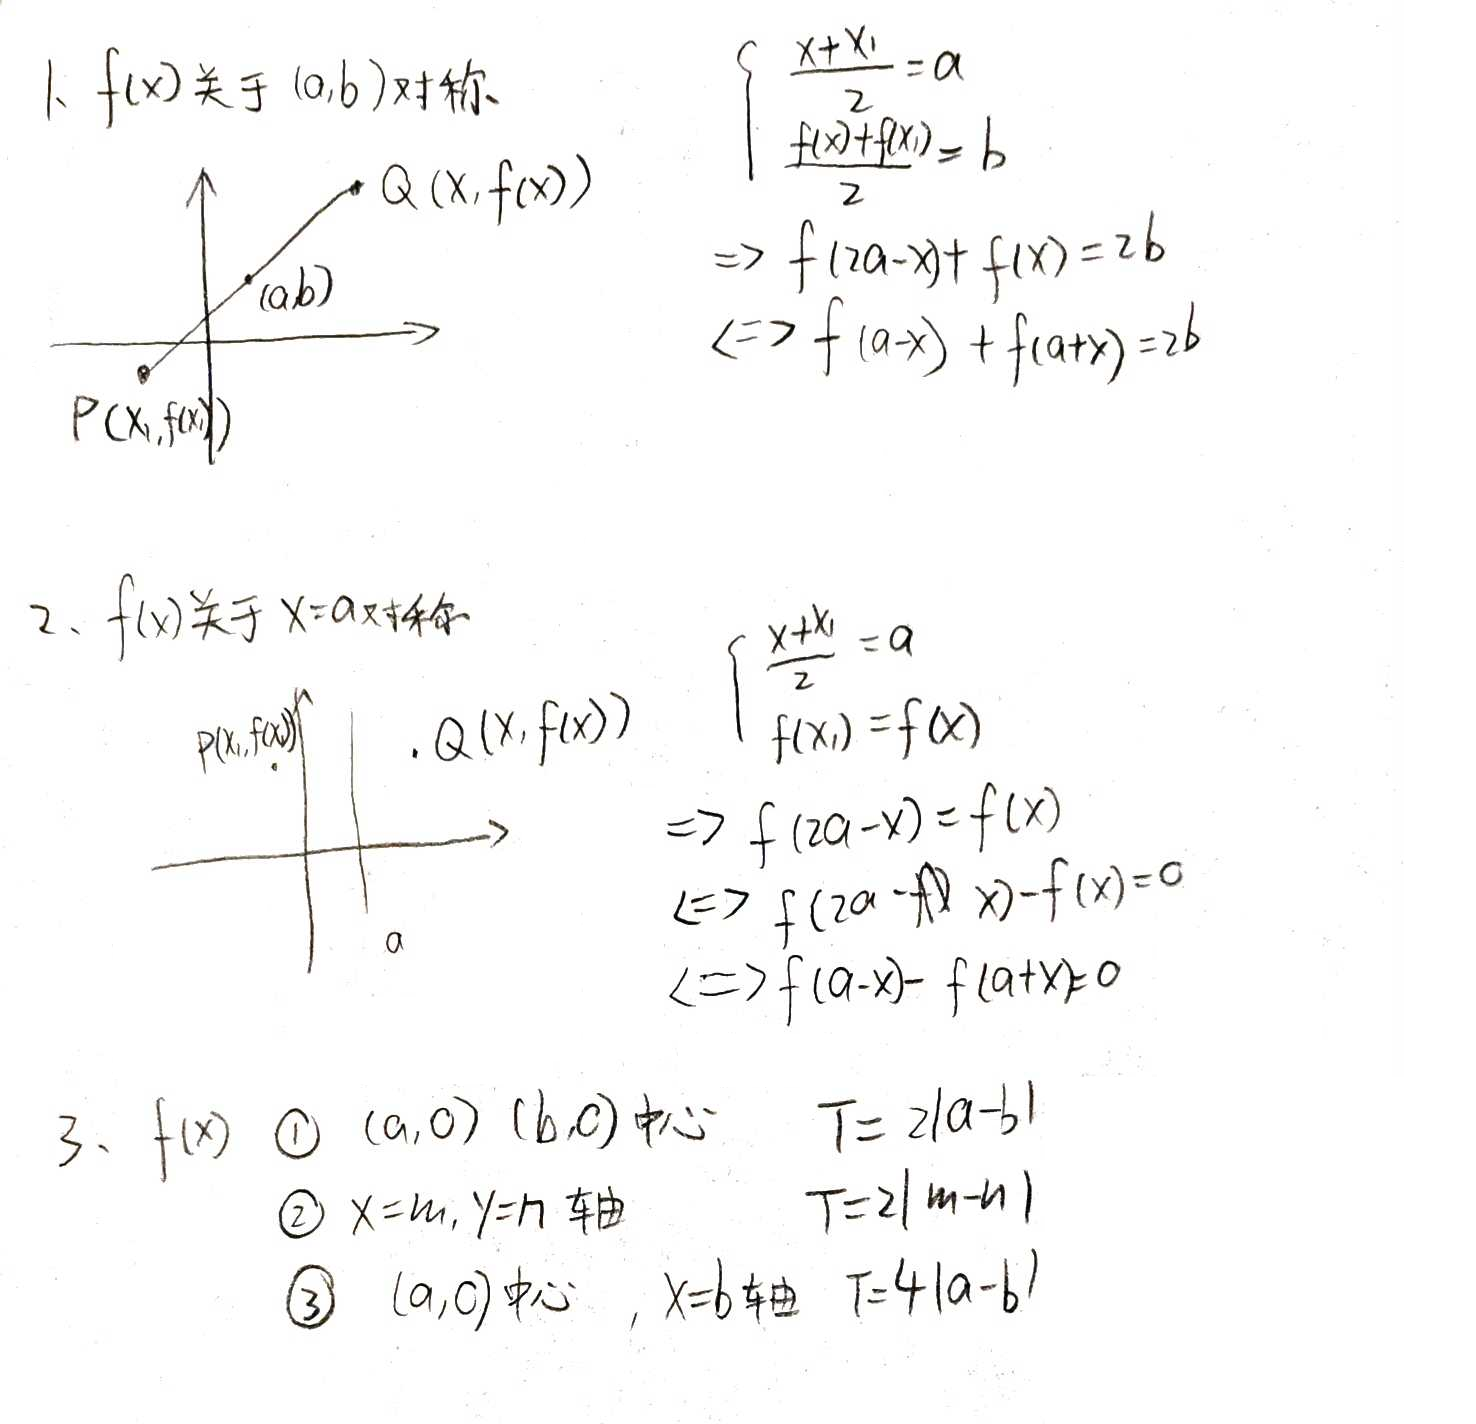 1、f(x)关于(a,b)对称
Q(x,f(x))
(a,b)
P(x₁,f(x₁))
{ (x+x₁)/2=a
(f(x)+f(x₁))/2=b
=> f(2a-x)+f(x)=2b
<=> f(a-x)+f(a+x)=2b
2、f(x)关于x=a对称
P(x₁,f(x₁))
Q(x,f(x))
a
{ (x+x₁)/2=a
f(x₁)=f(x)
=> f(2a-x)=f(x)
<=> f(2a-x)-f(x)=0
<=> f(a-x)-f(a+x)=0
3、f(x) ① (a,0) (b,0)中心 T=2|a-b|
② x=m,y=n轴 T=2|m-n|
③ (a,0)中心,x=b轴 T=4|a-b|